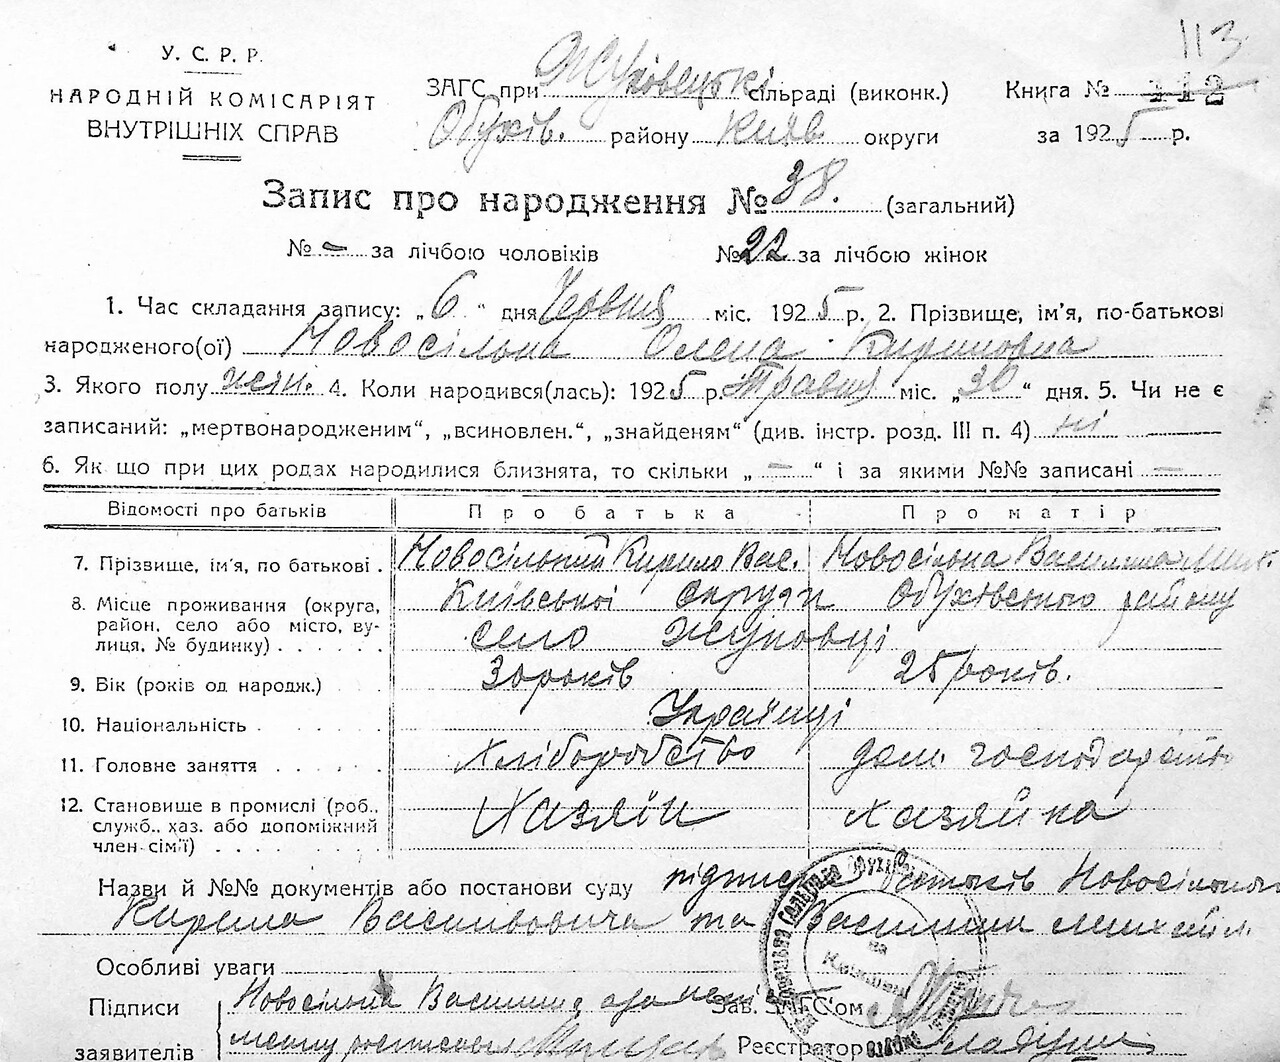 113
У. С. Р. Р.
НАРОДНІЙ КОМІСАРІЯТ
ВНУТРІШНІХ СПРАВ
ЗАГС при Жуковецькі сільраді (виконк.) Книга № 112
Обухів. району Київ округи за 1925 р.
Запис про народження № 38. (загальний)
№ – за лічбою чоловіків № 22 за лічбою жінок
1. Час складання запису: „6“ дня Червня міс. 1925 р. 2. Прізвище, ім'я, по-батькові
народженого(ої) Новосільна Олена Кириловна
3. Якого полу жін. 4. Коли народився(лась): 1925 р. Травня міс. „30“ дня. 5. Чи не є
записаний: „мертвонародженим“, „всиновлен.“, „знайденям“ (див. інстр. розд. III п. 4) ні
6. Як що при цих родах народилися близнята, то скільки „–“ і за якими №№ записані –
Відомості про батьків Про батька Про матір
7. Прізвище, ім'я, по батькові. Новосільний Кирило Вас. Новосільна Василина Мих.
8. Місце проживання (округа, Київської округи Обухівського району
район, село або місто, ву- село Жуковці
лиця, № будинку)
9. Вік (років од народж.) 30 років 25 років.
10. Національність Українці
11. Головне заняття Хліборобство дом. господарство
12. Становище в промислі (роб., Хазяїн хазяйка
служб., хаз. або допоміжний
член сім'ї)
Назви й №№ документів або постанови суду підписка батьків Новосільного
Кирила Васильовича та Василини Михайл.
Особливі уваги
Підписи Новосільна Василина Зав. ЗАГС'ом
заявителів Реєстратор